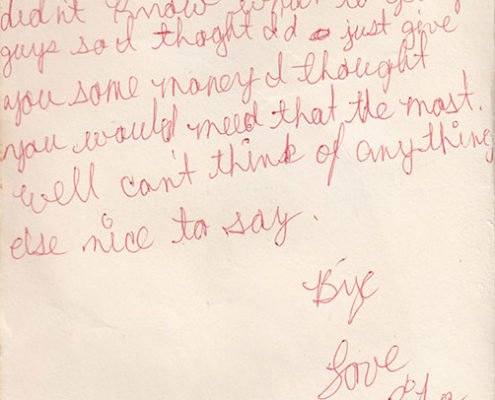 didn't know what to get
guys so I thoght I'd just give
you some money I thought
you would need that the most.
Well can't think of anything
else nice to say.
Bye
Love